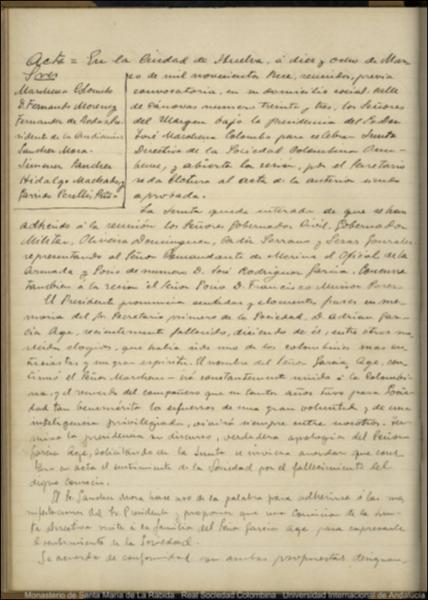 Acta = En la Ciudad de Huelva, á diez y ocho de Mar-
Sres
zo de mil novecientos trece, reunidos, previa
Marchena Colombo
convocatoria, en su domicilio social calle
D. Fernando Moreno
de Cánovas numero treinta y tres, los Señores
Fernandez de
del Margen bajo la presidencia del Sr. Don
sidente de la Audiencia
José Marchena Colombo para celebrar Junta
Sanchez Mora
Directiva de la Sociedad Colombina Onu-
Jimenez Sanchez
bense, y abierta la sesión, por el Secretario
Hidalgo Machado, y
se da lectura al acta de la anterior siendo
Garrido Perelló, Srio
aprobada.
La Junta queda enterada de que se han
adherido á la reunión los Señores Gobernador Civil, Gobernador
Militar, Oliveira Dominguez, Cadiz Serrano y
representando al Señor Comandante de Marina el Oficial de la
Armada y Socio de número D. José Rodriguez Garcia. Concurre
tambien á la sesión el Señor Socio D. Francisco Muñoz Perez
El Presidente pronuncia sentidas y elocuentes frases en me-
moria del Sr. Secretario primero de la Sociedad, D. Adrian Gar-
cia Age, recientemente fallecido, diciendo de él, entre otros me-
recidos elogios, que habia sido uno de los colombinos mas en-
tusiastas y un gran espiritu. El nombre del Señor Garcia Age, con-
tinuó el Señor Marchena irá constantemente unido á la Colombi-
na; y el recuerdo del compañero que en tantos años tuvo para Socie-
dad tan benemérita los esfuerzos de una gran voluntad y de una
inteligencia privilegiada, vivirá siempre entre nosotros. Ter-
mina la presidencia su discurso, verdadera apología del Señor
Garcia Age, solicitando de la Junta se sirviera acordar que cons-
tara en acta el sentimiento de la Sociedad por el fallecimiento del
digno consocio.
El Sr. Sanchez Mora hace uso de la palabra para adherirse á las ma-
nifestaciones del Sr. Presidente y propone que una Comisión de la Jun-
ta Directiva visite á la familia del Señor Garcia Age para expresarle
el sentimiento de la Sociedad.
Se acuerda de conformidad con ambas propuestas designan-
Monasterio de Santa María de La Rábida · Real Sociedad Colombina · Universidad Internacional de Andalucía